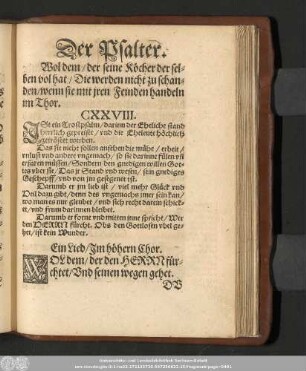 Der Psalter.
Wol dem / der seine Köcher der sel-
ben vol hat / Die werden nicht zu schan-
den / wenn sie mit jren Feinden handeln
im Thor.
CXXVIII.
IST ein Trostpsalm / darinn der Eheliche stand
herrlich gepreiset / vnd die Eheleute höchlich
getröstet werden.
Das sie nicht sollen ansehen die mühe / erbeit /
vnlust vnd andere vngemach / so sie darinne fülen vñ
Sondern den gnedigen willen Got-
tes vber sie / Das jr Stand vnd wesen / sein gnediges
Geschepff / vnd von jm gesegenet ist.
Darumb er jm lieb ist / viel mehr Glück vnd
wo man es nur gleubet / vnd sich recht darein schick-
et / vnd from darinnen bleibet.
Darumb er forne vnd mitten inne spricht / Wer
den HERRN fürcht. Obs den Gottlosen vbel ge-
het / ist kein Wunder.
Ein Lied / Im höhern Chor.
WOL dem / der den HERRN für-
chtet / Vnd seinen wegen gehet.
DV